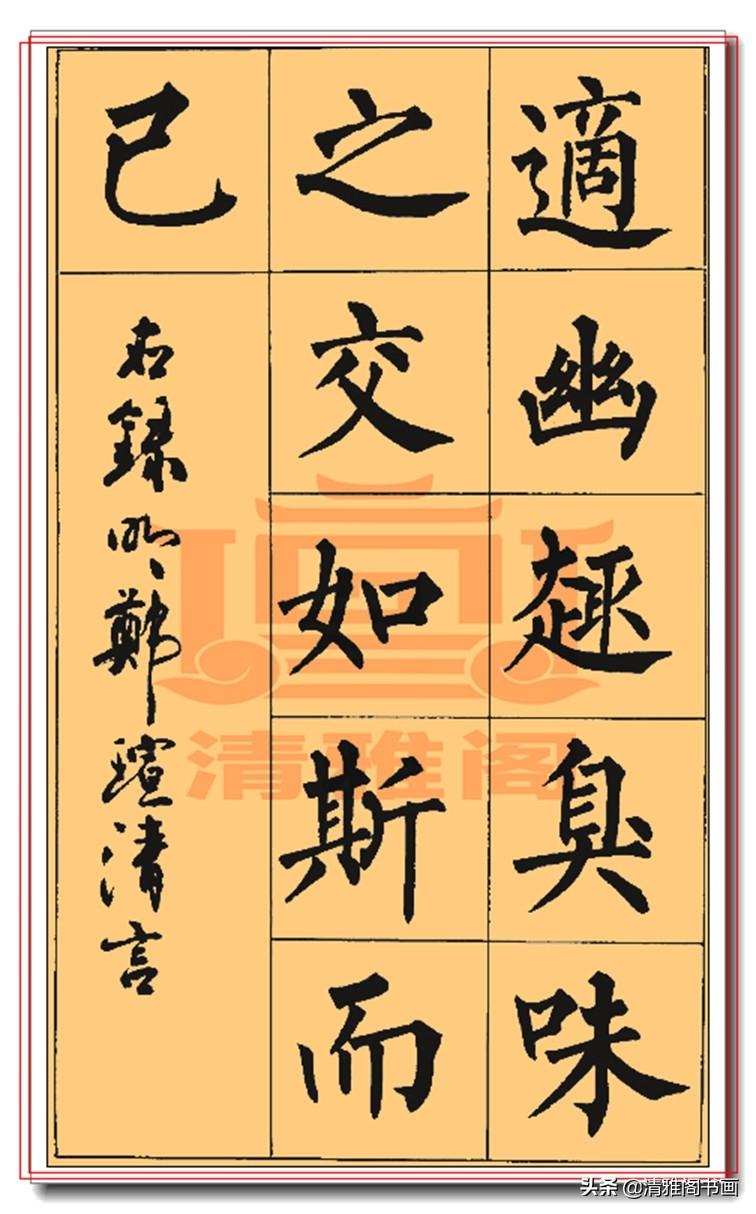 適幽趣臭味
之交如斯而
已
右錄明鄭瑄清言
清雅阁
头条 @清雅阁书画